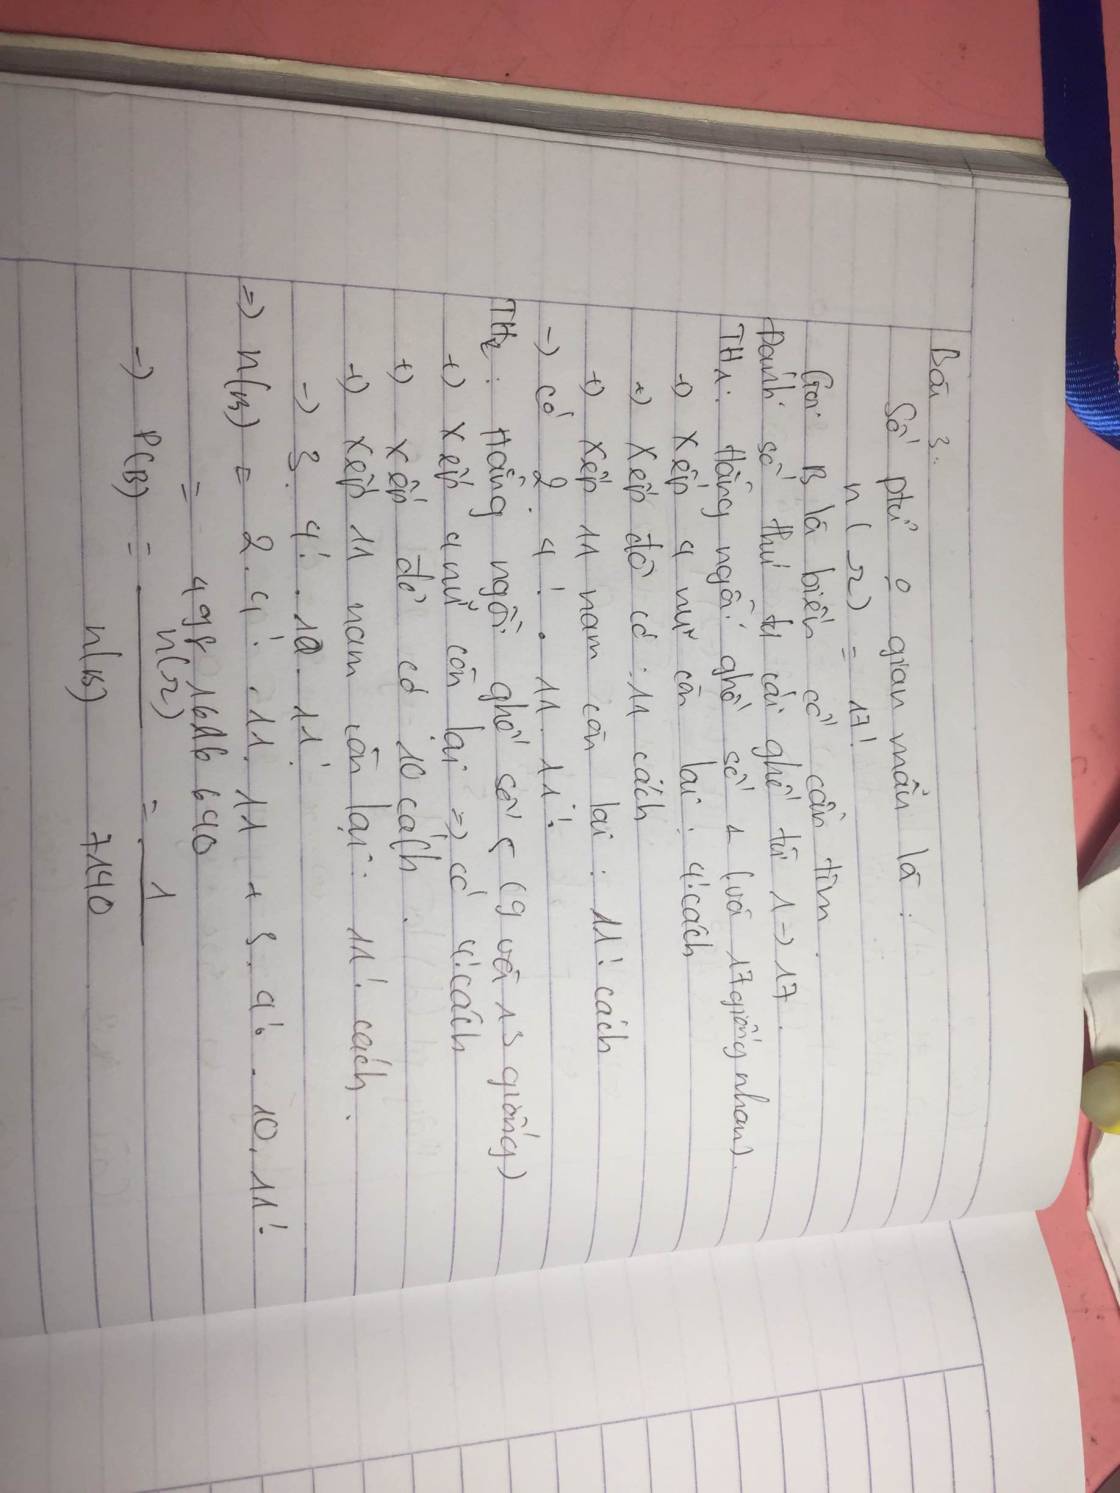 Bài 3:
Số phtử o gian mẫu là:
n(Ω) = 17!
Gọi B là biến cố cần tìm.
Đánh số thứ tự cái ghế từ 1 -> 17.
TH1: Hằng ngồi ghế số 1 (và 17 giống nhau).
+) xếp 4 nữ còn lại: 4! cách
+) xếp đô có: 11 cách
+) xếp 11 nam còn lại: 11! cách
-) có 2. 4! . 11. 11!
TH2: Hằng ngồi ghế số 5 (9 và 13 giống)
+) xếp 4 nữ còn lại => có 4! cách
+) xếp đô có 10 cách.
+) xếp 11 nam còn lại: 11! cách.
-) 3. 4! . 10. 11!
=> n(B) = 2. 4! . 11. 11! + 3. 4! . 10. 11!
= 49816166640
-) P(B) = n(Ω) / n(B) = 1 / 7140